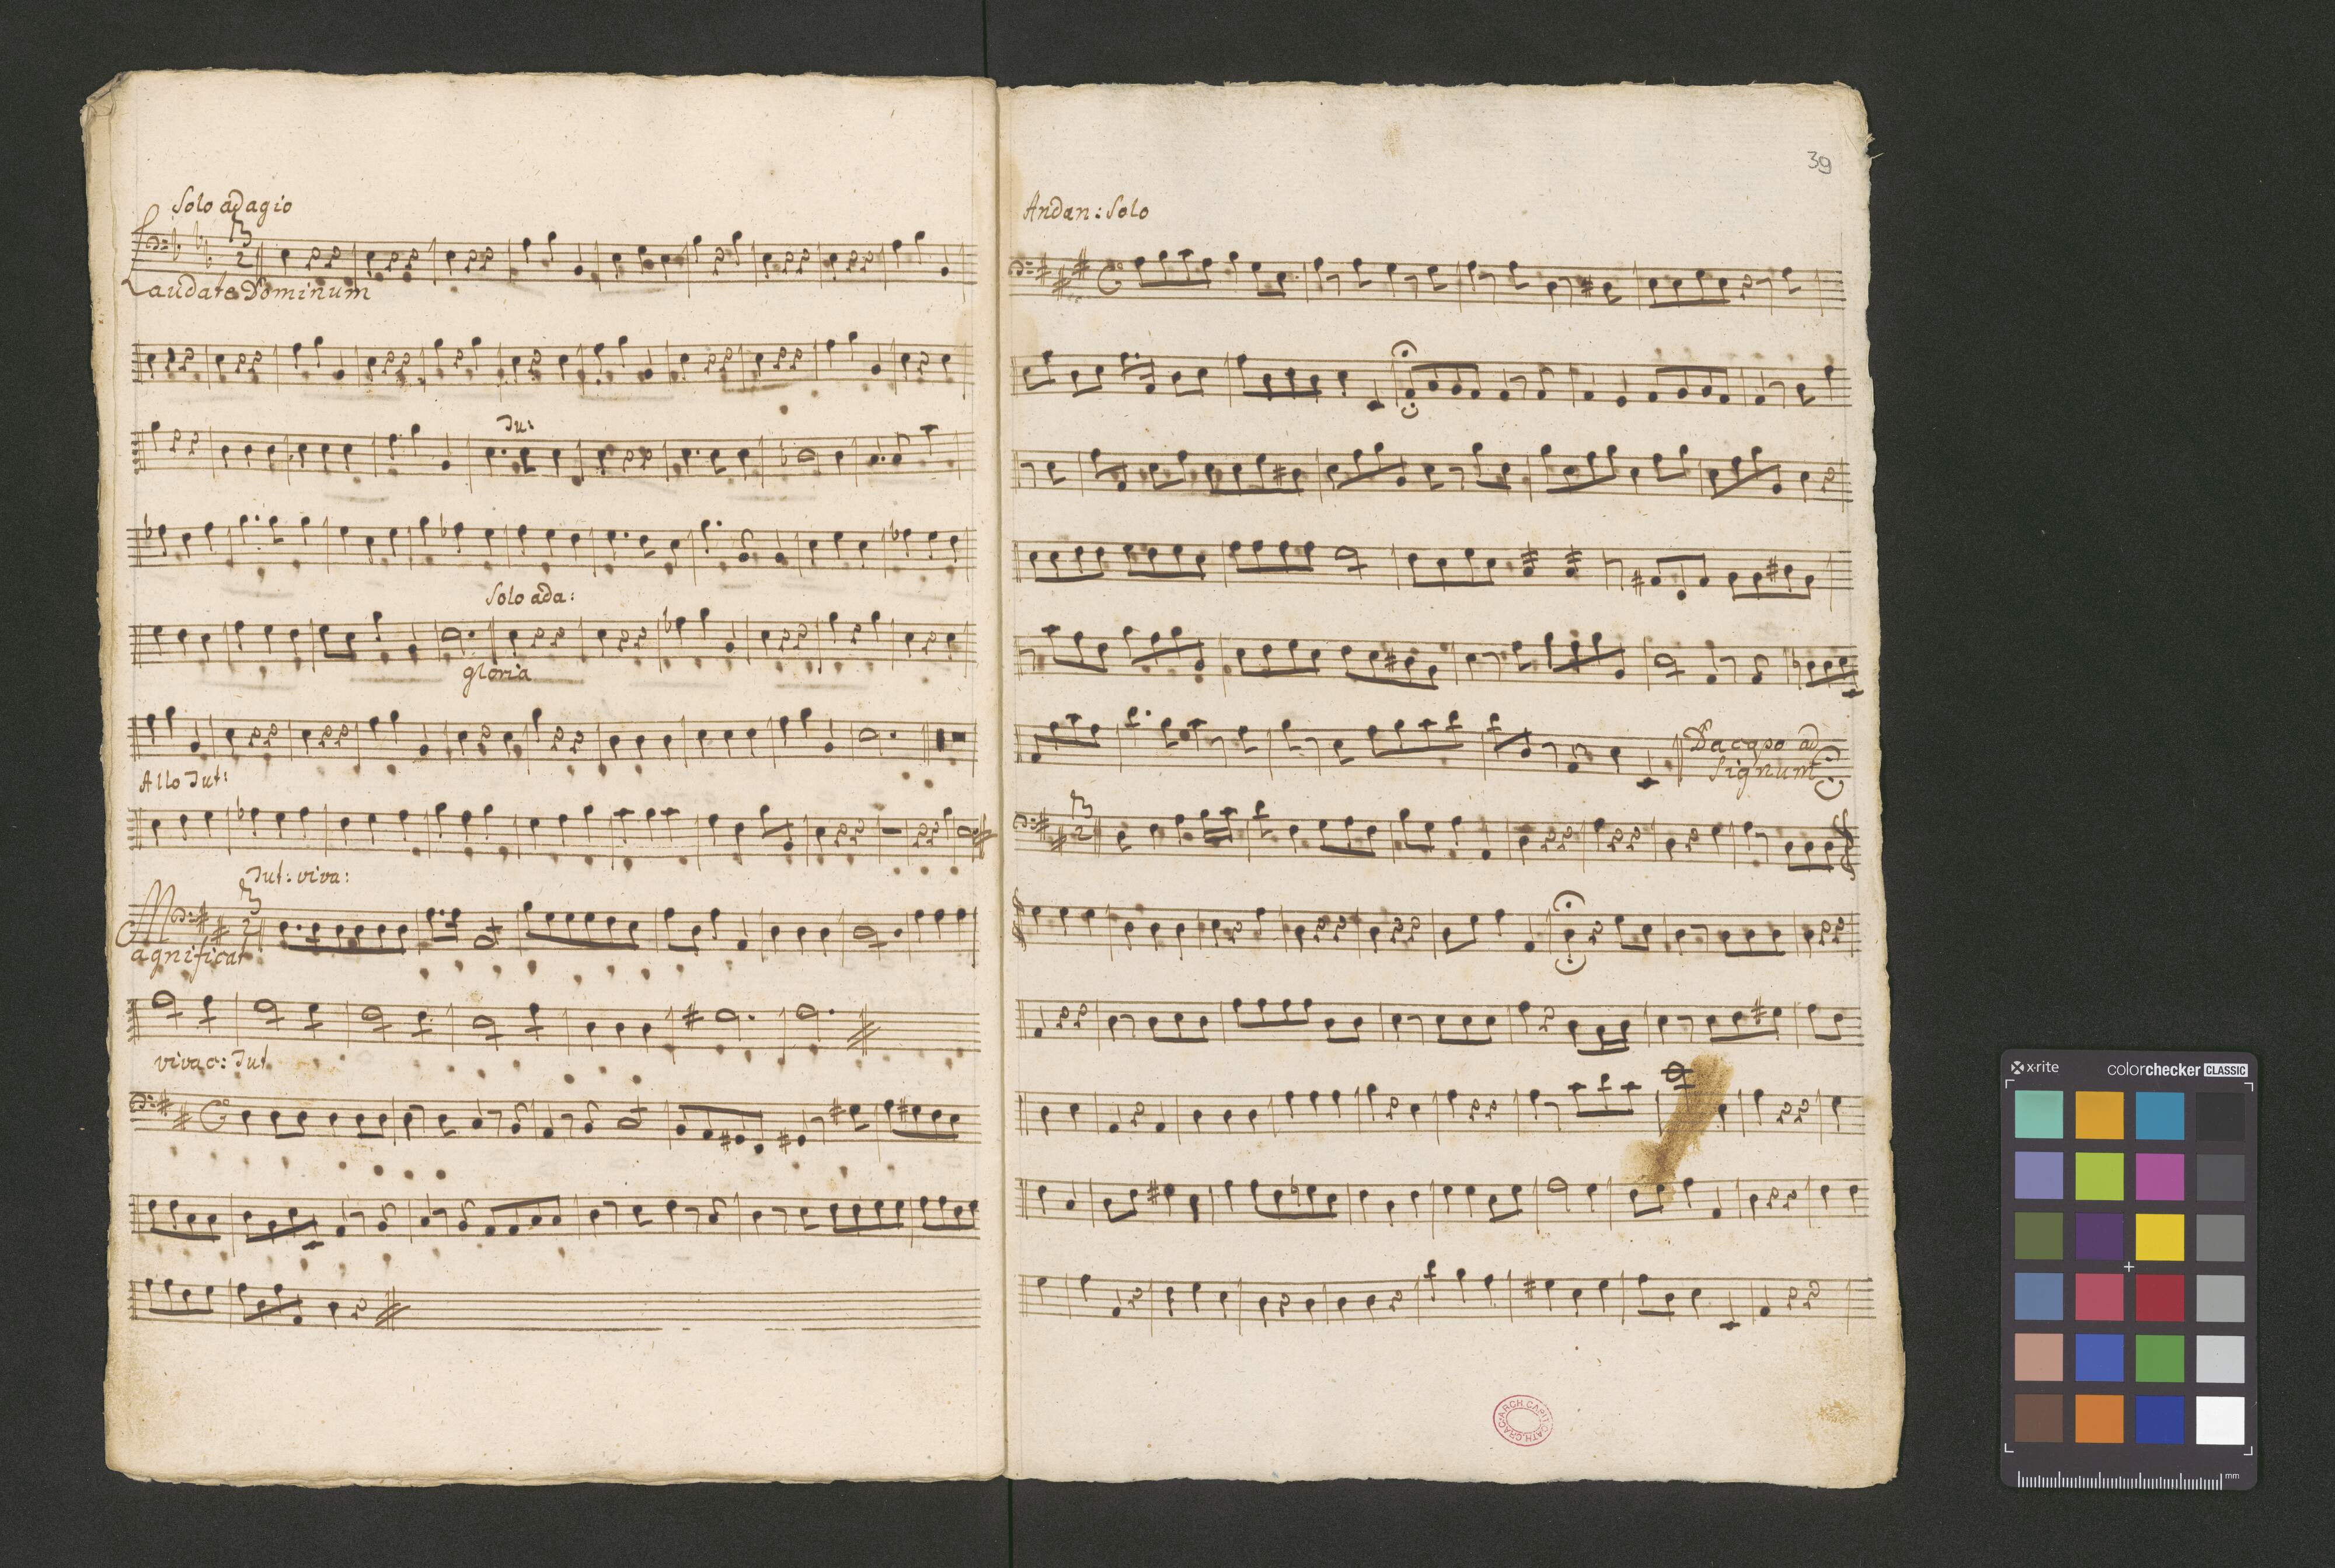 Solo adagio
Laudate Dominum
Tu:
Solo ada:
gloria
Allo Tut:
Tut: viva:
Magnificat
vivac: Tut
39
Andan: Solo
Dacapo ad
Signum
ARCH. CAPIT.
x-rite
colorchecker CLASSIC
mm